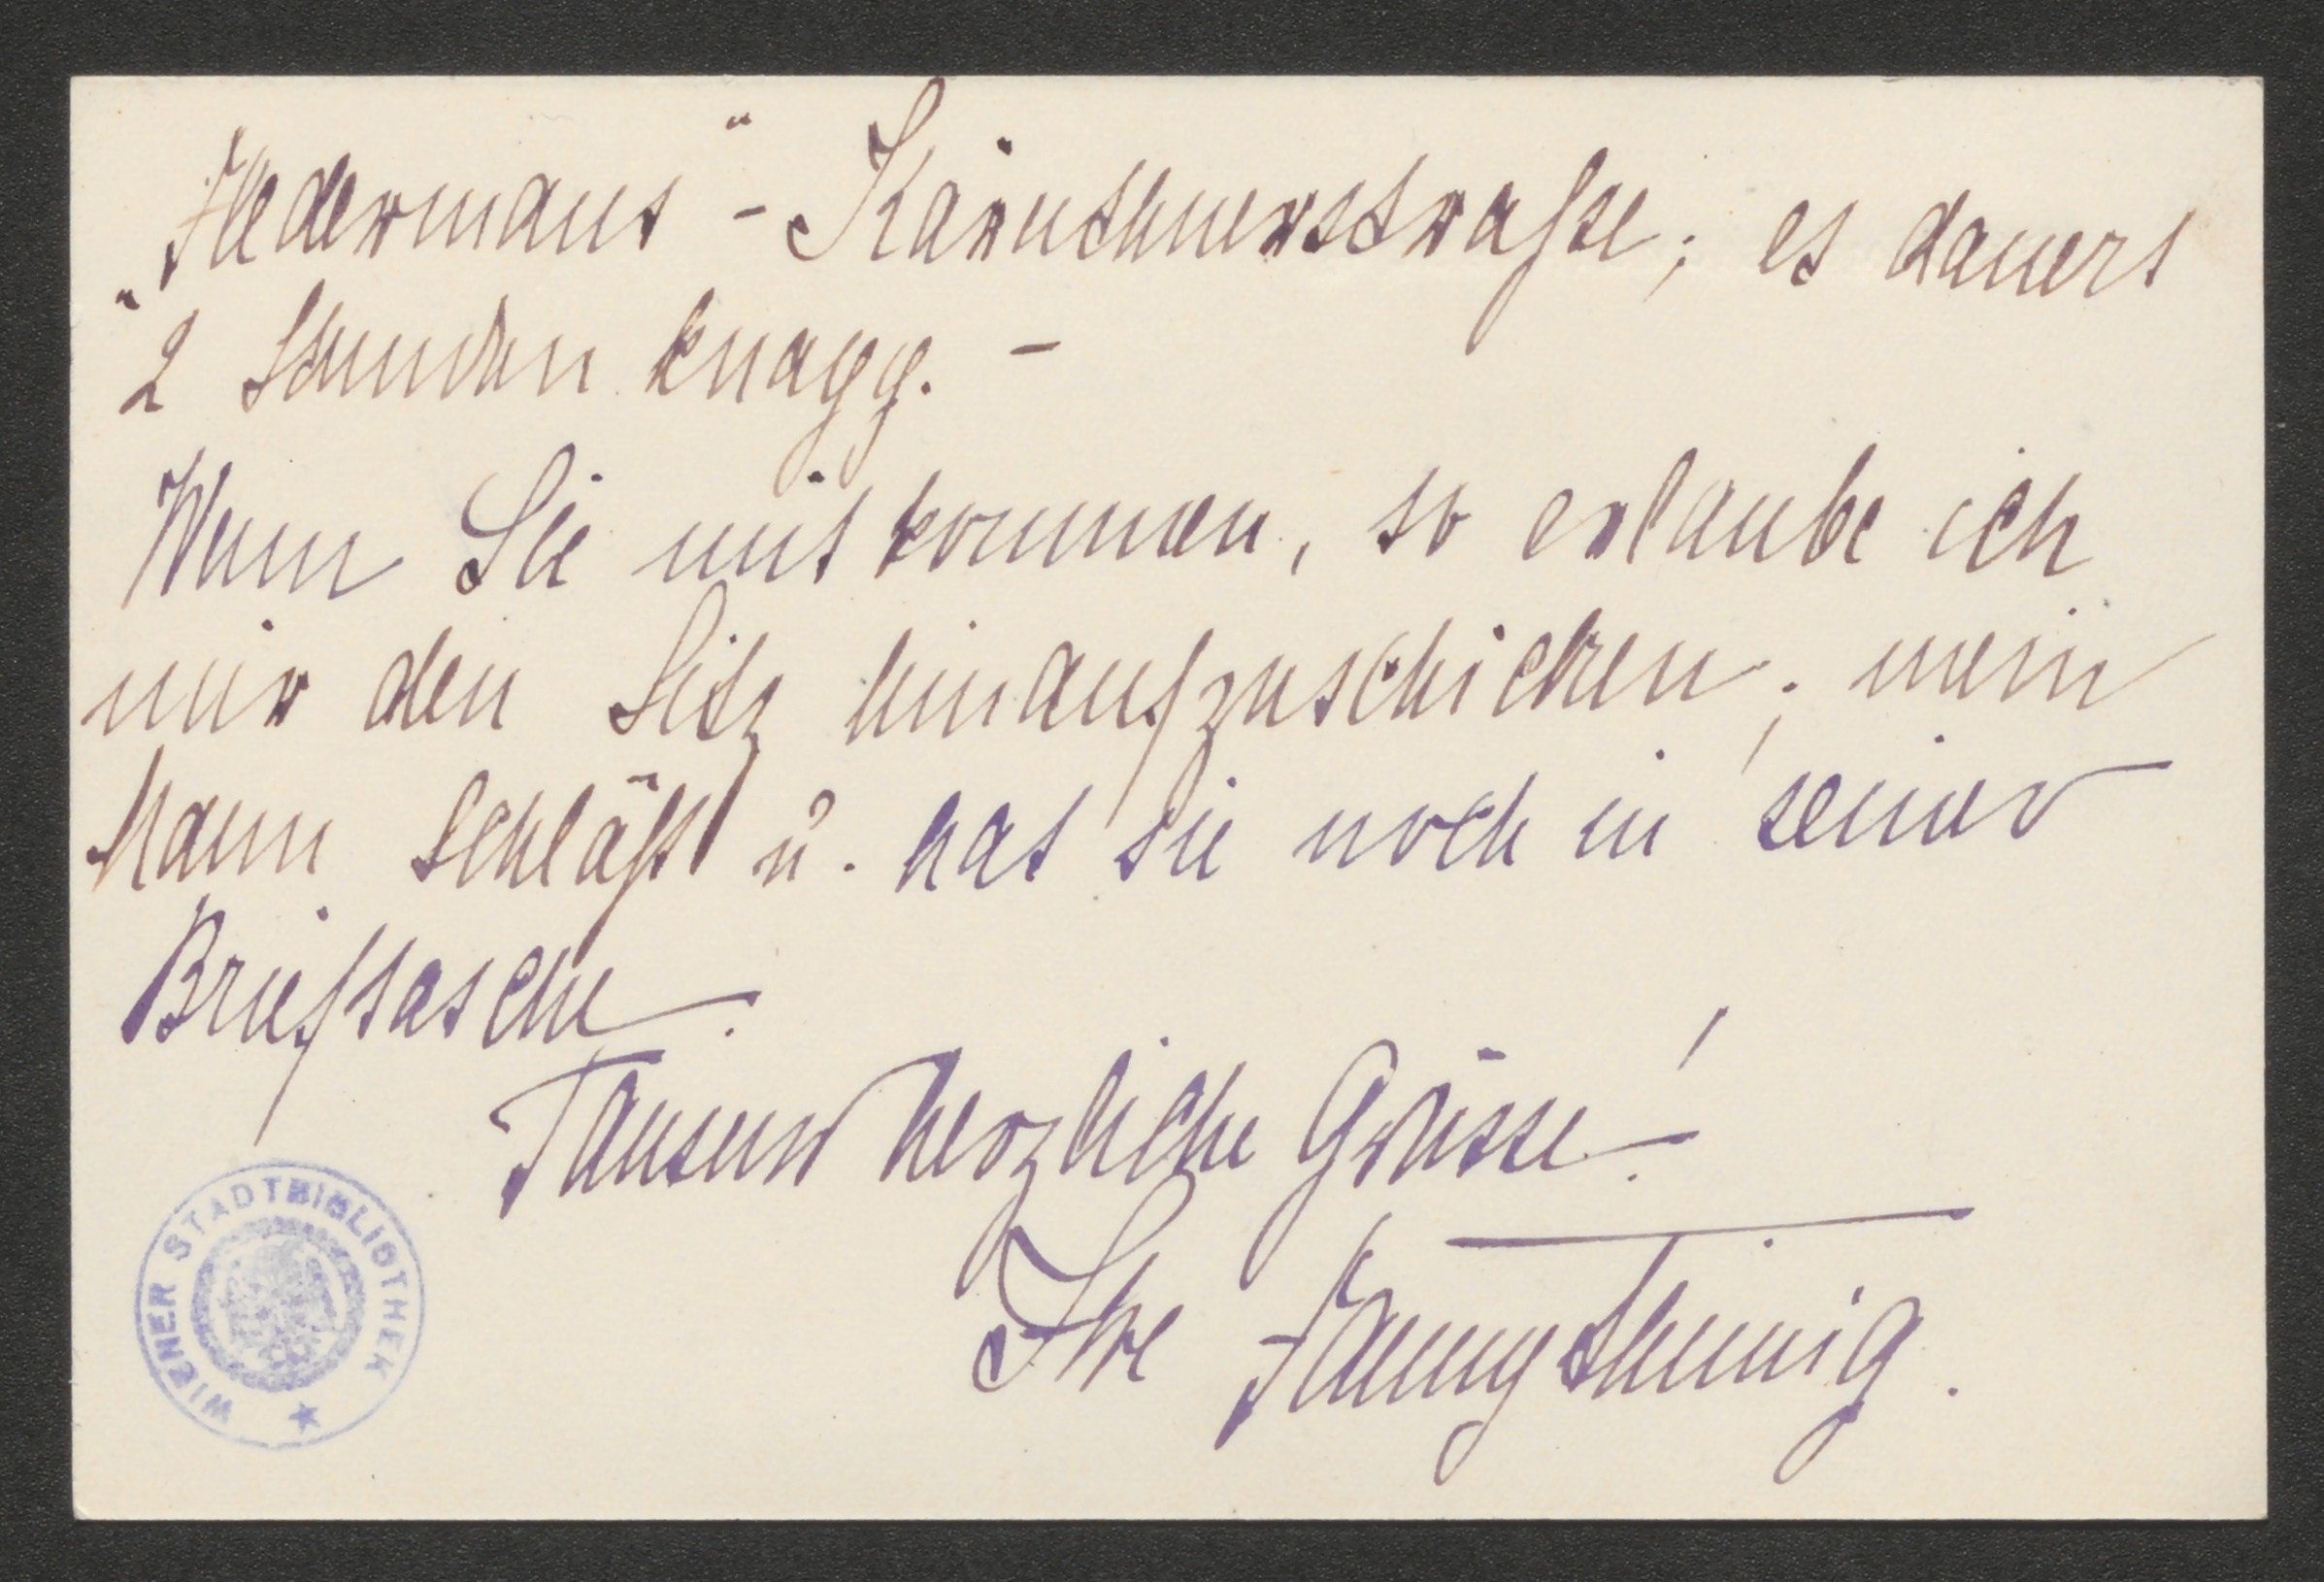 „Fledermaus" - Kärnthnerstraße; es dauert
2 Stunden knapp. -
Wenn Sie mitkommen, so erlaube ich
mir den Sitz hinaufzuschicken; mein
Mann schläft u. hat sie noch in seiner
Brieftasche.
Tausend herzliche Grüsse!
Ihre Fanny
WIENER STADTBIBLIOTHEK